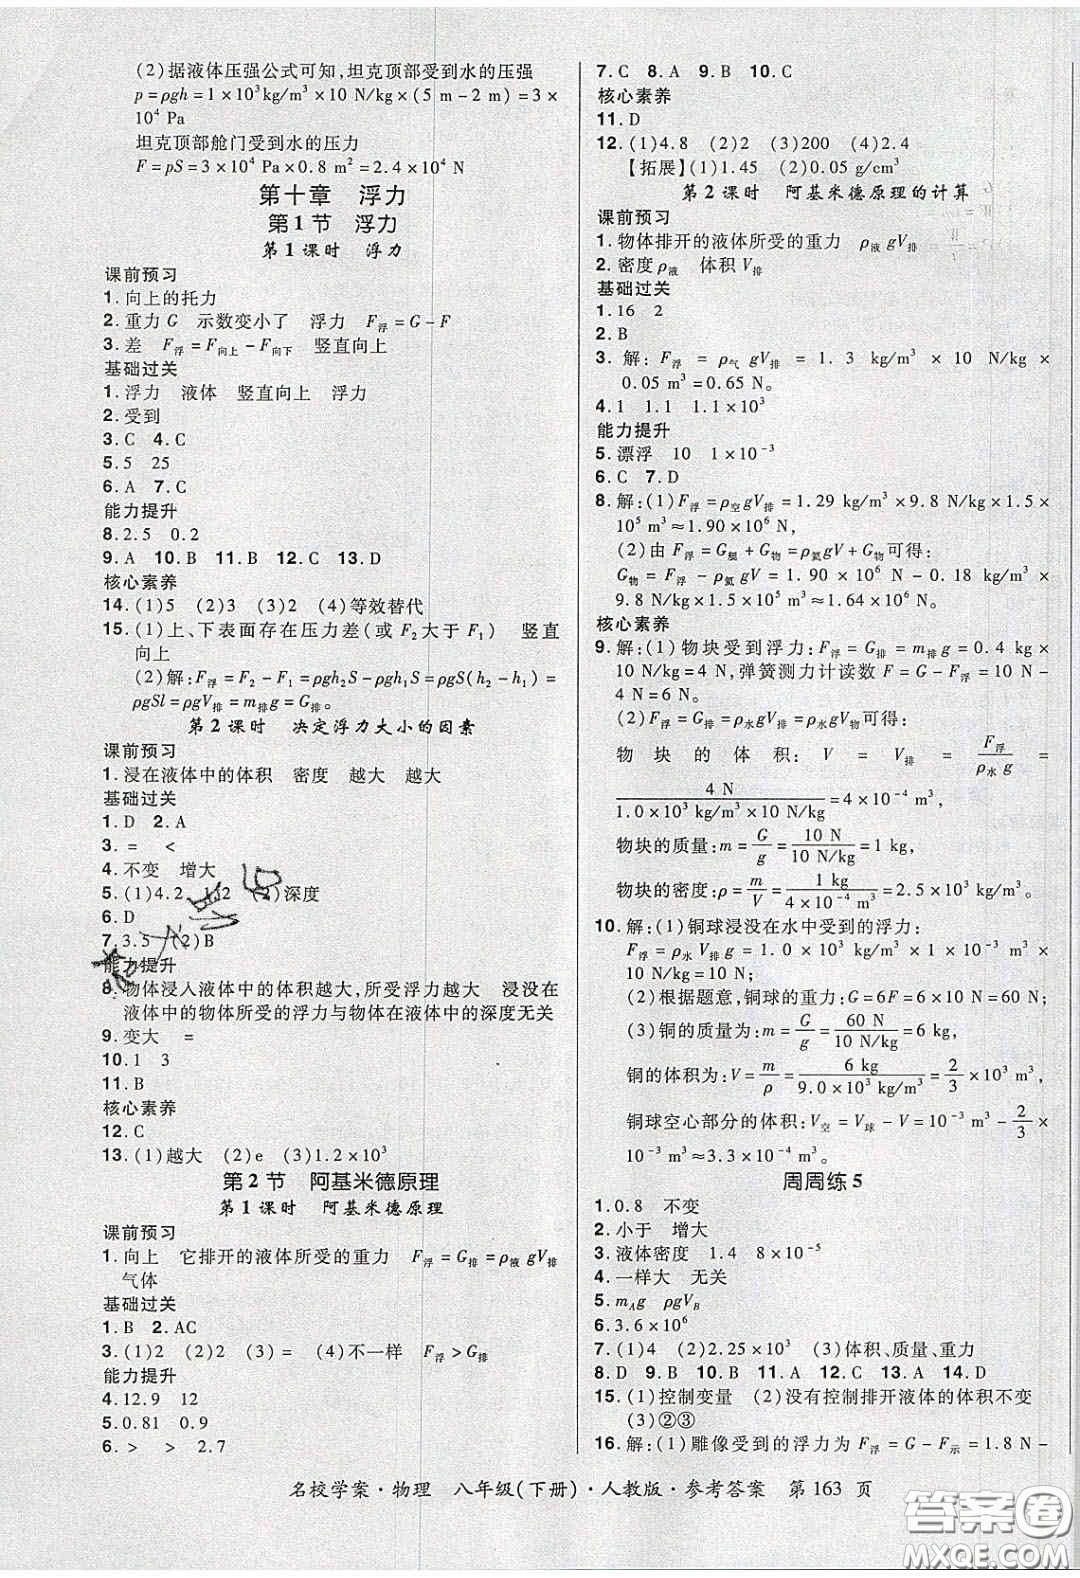 (2)据液体压强公式可知,坦克顶部受到水的压强
p=ρgh=1×10³kg/m³×10 N/kg×(5 m-2 m)=3×
10⁴ Pa
坦克顶部舱门受到水的压力
F=pS=3×10⁴ Pa×0.8 m²=2.4×10⁴ N
第十章 浮力
第1节 浮力
第1课时 浮力
课前预习
1.向上的托力
2.重力G 示数变小了 浮力 F浮=G-F
3.差 F浮=F向上-F向下 竖直向上
基础过关
1.浮力 液体 竖直向上 浮力
2.受到
3.C 4.C
5.5 25
6.A 7.C
能力提升
8.2.5 0.2
9.A 10.B 11.B 12.C 13.D
核心素养
14.(1)5 (2)3 (3)2 (4)等效替代
15.(1)上、下表面存在压力差(或F₂大于F₁) 竖直
向上
(2)解:F浮=F₂-F₁=ρgh₂S-ρgh₁S=ρgS(h₂-h₁)=
ρgSl=ρgV排=m排g=G排。
第2课时 决定浮力大小的因素
课前预习
1.浸在液体中的体积 密度 越大 越大
基础过关
1.D 2.A
3.= <
4.不变 增大
5.(1)4.2 1.2 (2)深度
6.D
7.3.5 (2)B
能力提升
8.物体浸入液体中的体积越大,所受浮力越大 浸没在
液体中的物体所受的浮力与物体在液体中的深度无关
9.变大 =
10.1 3
11.B
核心素养
12.C
13.(1)越大 (2)e (3)1.2×10³
第2节 阿基米德原理
第1课时 阿基米德原理
课前预习
1.向上 它排开的液体所受的重力 F浮=G排=ρ液 gV排
气体
基础过关
1.B 2.AC
3.(1)2 (2)2 (3)= (4)不一样 F浮>G排
能力提升
4.12.9 12
5.0.81 0.9
6.> > 2.7
7.C 8.A 9.B 10.C
核心素养
11.D
12.(1)4.8 (2)2 (3)200 (4)2.4
【拓展】(1)1.45 (2)0.9 g/cm³
第2课时 阿基米德原理的计算
课前预习
1.物体排开的液体所受的重力 ρ液 gV排
2.密度ρ液 体积V排
基础过关
1.16 2
2.B
3.解:F浮=ρ气 gV排=1.3 kg/m³×10 N/kg×
0.05 m³=0.65 N。
4.1 1.1 1.1×10³
能力提升
5.漂浮 10 1×10⁻³
6.C 7.D
8.解:(1)F浮=ρ空gV排=1.29 kg/m³×9.8 N/kg×1.5×
10⁵ m³≈1.90×10⁶ N,
(2)由F浮=G艇+G物=ρ氦gV+G物可得:
G物=F浮-ρ氦gV=1.90×10⁶ N-0.18 kg/m³×
9.8 N/kg×1.5×10⁵ m³≈1.64×10⁶ N。
核心素养
9.解:(1)物块受到浮力:F浮=G排=m排g=0.4 kg
×10 N/kg=4 N,弹簧测力计读数F=G-F浮=10 N-
4 N=6 N;
(2)F浮=G排=ρ水gV排=ρ水gV物可得:
物块的体积:V=V排=F浮/ρ水g=
4 N/1.0×10³ kg/m³×10 N/kg=4×10⁻⁴ m³,
物块的质量:m=G/g=10 N/10 N/kg=1 kg,
物块的密度:ρ=m/V=1 kg/4×10⁻⁴ m³=2.5×10³ kg/m³。
10.解:(1)铜球浸没在水中受到的浮力:
F浮=ρ水V排g=1.0×10³ kg/m³×1×10⁻³ m³×10 N/
kg=10 N;
(2)根据题意,铜球的重力:G=6F=6×10 N=60 N;
(3)铜的质量为:m=G/g=60 N/10 N/kg=6 kg,
铜的体积为:V=m/ρ=6 kg/9.0×10³ kg/m³=2/3×10⁻³ m³,
铜球空心部分的体积:V空=V球-V=10⁻³ m³-2/3
×10⁻³ m³≈3.3×10⁻⁴ m³。
周周练5
1.0.8 不变
2.小于 增大
3.液体密度 1.4 8×10⁻⁵
4.一样大 无关
5.mAg ρgVB
6.3.6×10⁶
7.(1)4 (2)2.25×10³ (3)体积、质量、重力
8.D 9.B 10.B 11.A 12.C 13.A 14.D
15.(1)控制变量 (2)没有控制排开液体的体积不变
(3)②③
16.解:(1)雕像受到的浮力为F浮=G-F示=1.8 N-
名校学案·物理 八年级(下册)·人教版·参考答案 第163页
答案圈
MXQE.COM